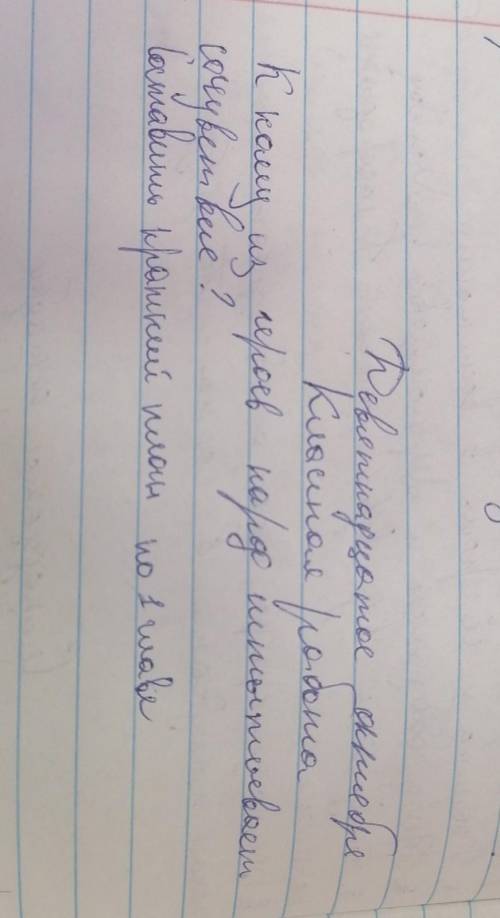 Девятнадцатое октября
Класная работа
К кому из героев народ испытывает
сочувствие?
Составить краткий план по 1 главе